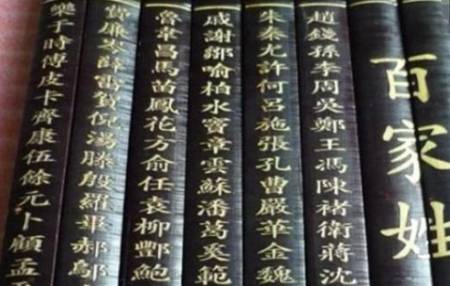 百家姓
趙錢孫李周吳鄭王馮陳褚衛蔣沈
朱秦尤許何呂施張孔曹嚴華金魏
戚謝鄒喻柏水竇章雲蘇潘葛奚範
魯韋昌馬苗鳳花方俞任袁柳酆鮑
費廉岑薛雷賀倪湯滕殷羅畢郝鄔
樂于時傅皮卡齊康伍餘元卜顧孟